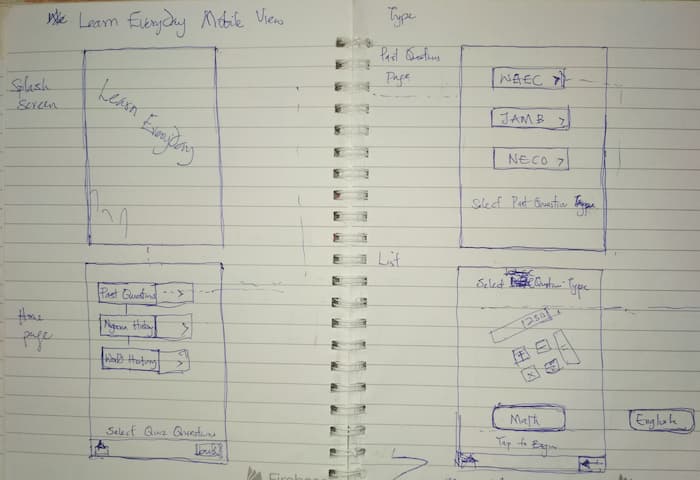 Learn Everyday Mobile View
Splash
Screen
Learn Everyday
Home
page
Past Questions
History
World History
Select Quiz Questions
Type
Past Questions
Page
WAEC >
JAMB >
NECO >
Select Past Question Type
List
Select Question Type
1250
+
-
x
÷
=
Math
English
Tap to Begin